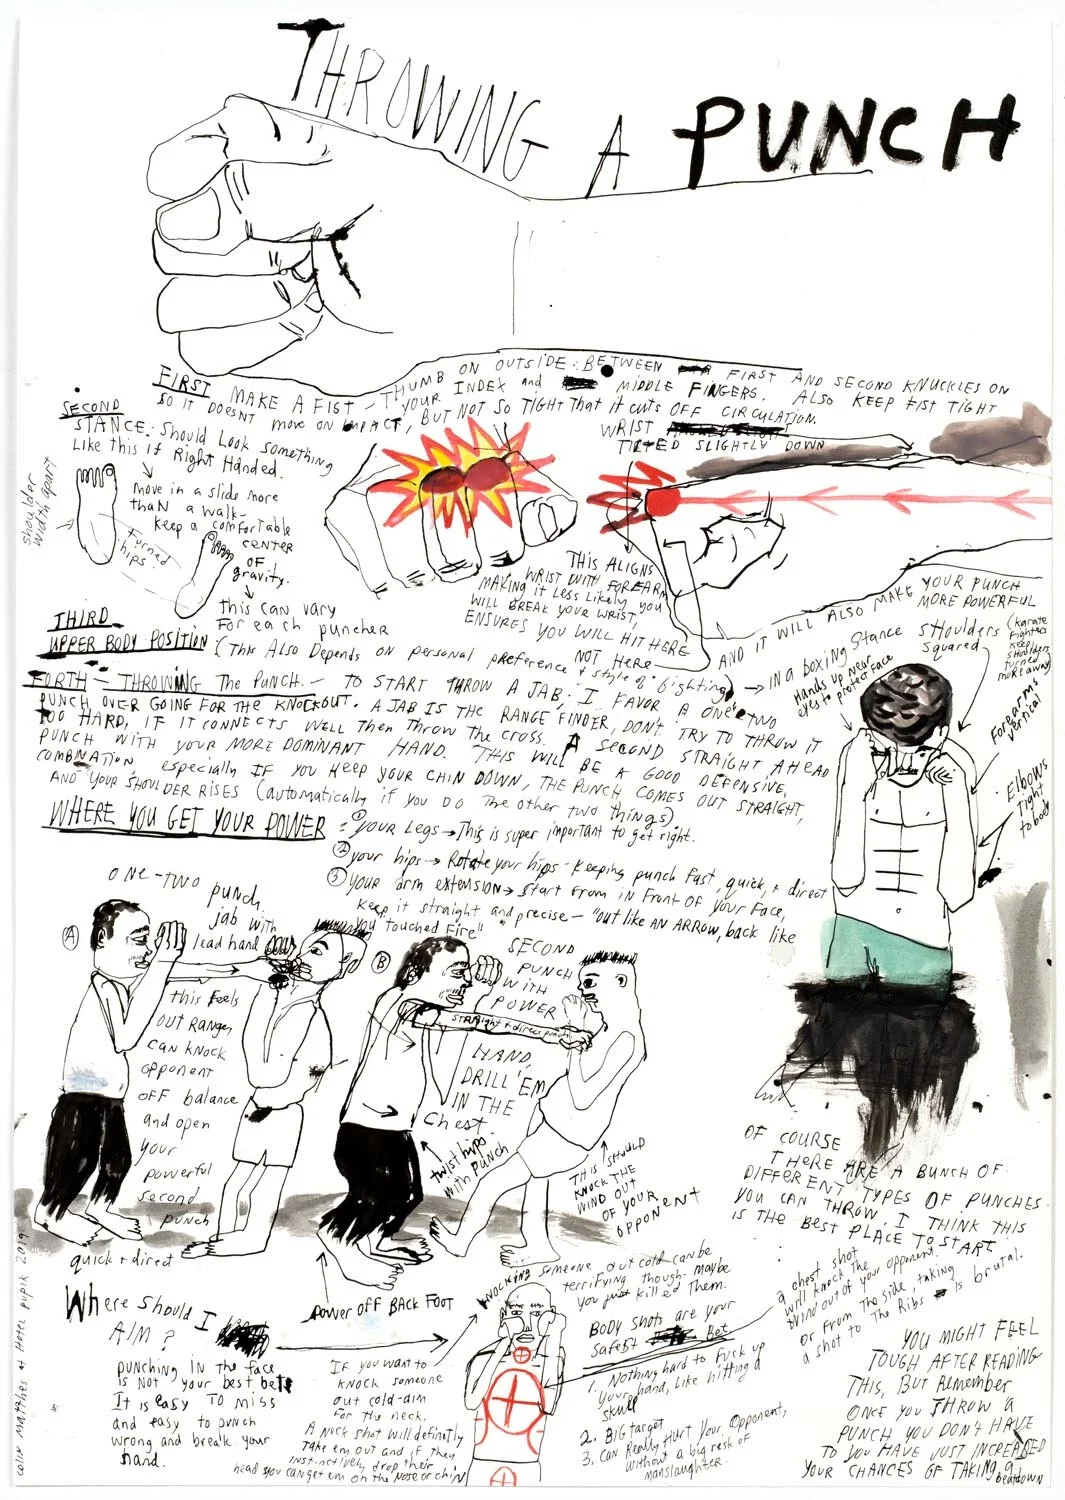 THROWING A PUNCH
FIRST MAKE A FIST - THUMB ON OUTSIDE: BETWEEN FIRST AND SECOND KNUCKLES ON
YOUR INDEX and MIDDLE FINGERS. ALSO KEEP FIST TIGHT
SO IT DOESNT move on IMPACT, BUT NOT SO TIGHT That it cuts OFF CIRCULATION.
WRIST
TILTED SLIGHTLY DOWN
SECOND
STANCE. Should Look something
Like this if Right Handed.
move in a slide more
thaN a walk-
keep a comfortable
CENTER
OF
gravity.
this can vary
For each puncher
shoulder
width apart
Turned
hips
THIS ALIGNS
WRIST WITH FOREARM
MAKING it Less Likely you
WILL BREAK YOUR WRIST,
ENSURES YOU WILL HIT HERE
NOT HERE
AND IT WILL ALSO MAKE YOUR PUNCH
MORE POWERFUL
THIRD
UPPER BODY POSITION (This Also Depends on personal preference + style of fighting)
IN a BOXING Stance SHOULDERS
Squared
(karate
fighters
keep
shoulders
turned
more away)
Hands up near
eyes to protect face
Forearms
vertical
Elbows
Tight
to body
FORTH - THROWING The PUNCH. - TO START THROW A JAB; I FAVOR A ONE TWO
PUNCH OVER GOING FOR THE KNOCKOUT. A JAB IS THE RANGE FINDER, DON'T TRY TO THROW IT
TOO HARD, IF IT CONNECTS WELL Then Throw The CROSS. A SECOND STRAIGHT AHEAD
PUNCH WITH YOUR MORE DOMINANT HAND. THIS WILL BE A GOOD DEFENSIVE
COMBINATION especially IF YOU KEEP YOUR CHIN DOWN, THE PUNCH COMES OUT STRAIGHT,
AND YOUR SHOULDER RISES (automatically if you DO The other two things)
WHERE YOU GET YOUR POWER
: ① YOUR Legs → This is super important to get right.
② your hips → Rotate your hips - Keeping punch fast, quick, + direct
③ your arm extension → start from in Front OF your Face,
Keep it straight and precise - "out like AN ARROW, back like
you Touched Fire"
ONE-TWO
punch
jab with
lead hand
Ⓐ
this Feels
OUT Range,
CAN KNOCK
opponent
OFF balance
and open
your
powerful
second
punch
quick + direct
Ⓑ
SECOND
PUNCH
WITH
POWER
STRAIGHT + direct punch
HAND,
DRILL 'EM
IN THE
Chest.
twist hips
with PUNCH
THIS SHOULD
KNOCK THE
WIND OUT
OF YOUR
opponent
power OFF BACK FOOT
OF COURSE
THERE ARE A BUNCH OF
DIFFERENT TYPES OF PUNCHES
YOU CAN THROW. I THINK THIS
IS THE BEST PLACE TO START.
Where Should I
AIM?
punching IN the face
is Not your best bet
It is easy TO miss
and easy to punch
wrong and break your
hand.
IF YOU WANT to
knock someone
out cold-aim
For the neck.
A neck shot will definetly
Take em out and if they
instinctively drop their
head you can get em on the Nose or chin
KNOCKING someone out cold can be
terrifying though. maybe
you just killed Them.
BODY SHOTS are your
Safest Bet
1. Nothing hard to Fuck up
your hand, Like hitting a
skull
2. BIG target
3. Can Really Hurt Your Opponent,
without a big resk of
manslaughter.
a chest shot
will knock The
wind out of your opponent.
or From The side, taking
a shot to The Ribs is brutal.
YOU MIGHT FEEL
TOUGH AFTER READING
THIS, BUT Remember
ONCE YOU THROW A
PUNCH YOU DON'T HAVE
TO YOU HAVE JUST INCREASED
YOUR CHANCES OF TAKING a
beatdown
colin Matthes at Hotel pupik 2019